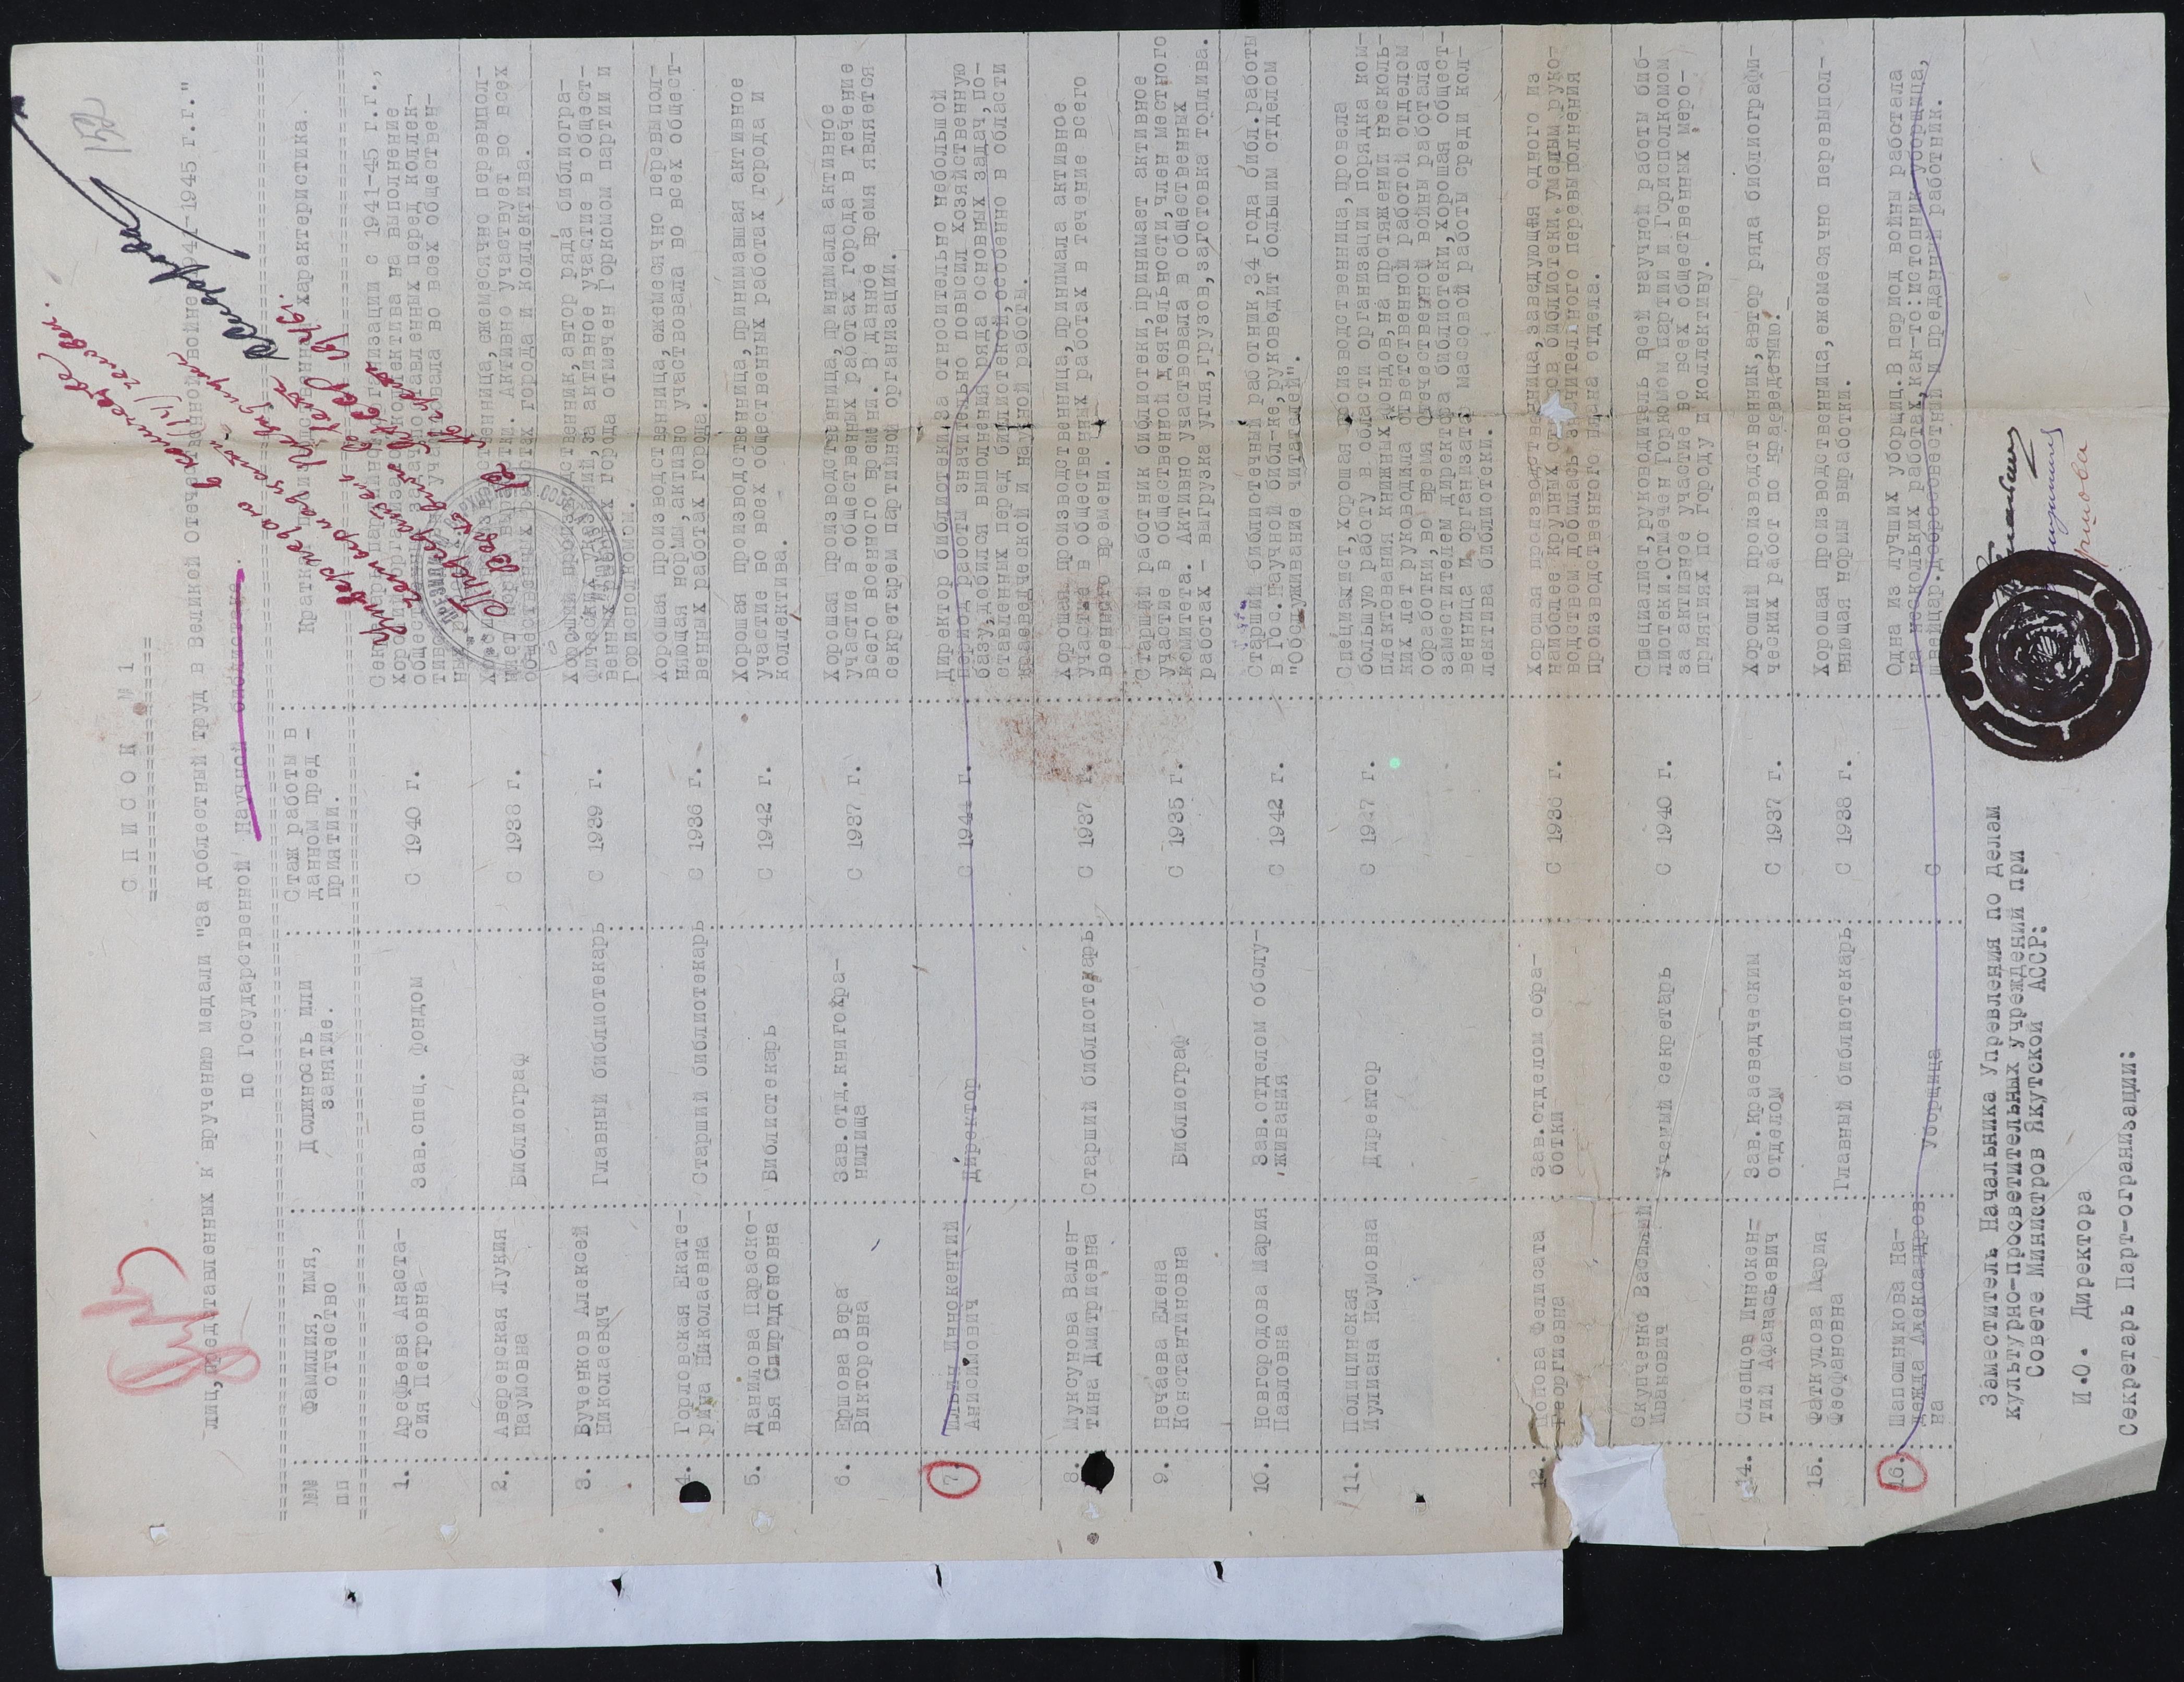 152
С П И С О К № 1
лиц, представленных к вручению медали "За доблестный труд в Великой Отечественной войне 1941-1945 г.г."
по Государственной Научной библиотеке.
№№ пп
Фамилия, имя, отчество
Должность или занятие.
Стаж работы в данном пред - приятии.
Краткая производственная характеристика.
1. Арефьева Анаста-
сия Петровна
Зав.спец. фондом
С 1940 г.
Секретарь партийной организации с 1941-45 г.г.,
хороший организатор коллектива на выполнение
2. Аверенская Лукия
Наумовна
Библиограф
С 1938 г.
общественных работах города и коллектива.
3. Бученков Алексей
Николаевич
Главный библиотекарь
С 1939 г.
Хороший производственник, автор ряда библиогра-
фических указаний, за активное участие в общест-
венных работах города отмечен Горкомом партии и
Горисполкомом.
4. Горловская Екате-
рина Николаевна
Старший библиотекарь
С 1936 г.
Хорошая производственница, ежемесячно перевыпол-
няющая нормы, активно участвовала во всех общест-
венных работах города.
5. Данилова Параске-
вья Спиридоновна
Библиотекарь
С 1942 г.
Хорошая производственница, принимавшая активное
участие во всех общественных работах города и
коллектива.
6. Ершова Вера
Викторовна
Зав.отд.книгохра-
нилища
С 1937 г.
Хорошая производственница, принимала активное
участие в общественных работах города в течение
всего военного времени. В данное время является
секретарем партийной организации.
7. Ильин Иннокентий
Анисимович
Директор
С 1944 г.
Директор библиотеки, за относительно небольшой
период работы значительно повысил хозяйственную
базу, добился выполнения ряда основных задач, по-
ставленных перед библиотекой, особенно в области
краеведческой и научной работы.
8. Муксунова Вален-
тина Дмитриевна
Старший библиотекарь
С 1937 г.
Хорошая производственница, принимала активное
участие в общественных работах в течение всего
военного времени.
9. Нечаева Елена
Константиновна
Библиограф
С 1935 г.
Старший работник библиотеки, принимает активное
участие в общественной деятельности, член местного
комитета. Активно участвовала в общественных
работах - выгрузка угля, грузов, заготовка топлива.
10. Новгородова Мария
Павловна
Зав.отделом обслу-
живания
С 1942 г.
Старший библиотечный работник, 34 года библ.работы
в Гос.Научной библ-ке, руководит большим отделом
"Обслуживание читателей".
11. Полицинская
Иулиана Наумовна
Директор
С 1927 г.
Специалист, хорошая производственница, провела
большую работу в области организации порядка ком-
плектования книжных фондов, на протяжении несколь-
ких лет руководила ответственной работой отделом
обработки, во время Отечественной войны работала
заместителем директора библиотеки, хорошая общест-
венница и организатор массовой работы среди кол-
лектива библиотеки.
12. Попова Фелисата
Георгиевна
Зав.отделом обра-
ботки
С 1936 г.
Хорошая производственница, заведующая одного из
наиболее крупных отделов библиотеки, умелым руко-
водством добилась значительного перевыполнения
производственного плана отдела.
Скупченко Василий
Иванович
Ученый секретарь
С 1940 г.
Специалист, руководитель всей научной работы биб-
лиотеки. Отмечен Горкомом партии и Горисполкомом
за активное участие во всех общественных меро-
приятиях по городу и коллективу.
14. Слепцов Иннокен-
тий Афанасьевич
Зав.краеведческим
отделом
С 1937 г.
Хороший производственник, автор ряда библиографи-
ческих работ по краеведению.
15. Фаткулова Мария
Феофановна
Главный библиотекарь
С 1938 г.
Хорошая производственница, ежемесячно перевыпол-
няющая нормы выработки.
16. Шапошникова На-
дежда Александров-
на
Уборщица
С
Одна из лучших уборщиц. В период войны работала
на нескольких работах, как-то: истопник, уборщица,
швейцар. добросовестный и преданный работник.
Заместитель Начальника Управления по делам
Культурно-просветительных учреждений при
Совете Министров Якутской АССР:
И.О. Директора
Секретарь Парт-организации: